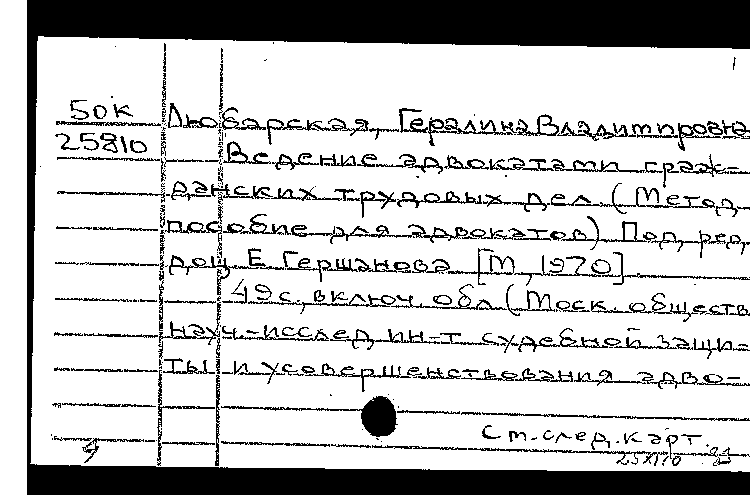 1
50к Любарская, Гералина Владимировна
25810 Ведение адвокатами граж-
данских трудовых дел. (Метод.
пособие для адвокатов) Под ред.
доц. Е. Гершанова. [М., 1970].
49 с., включ. обл. (Моск. обществ.
науч.-исслед. ин-т судебной защи-
ты и усовершенствования адво-
См. след. карт.
25XI70